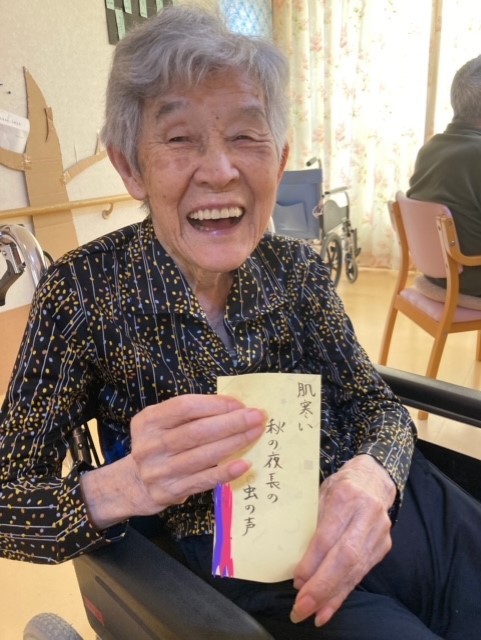 肌寒い
秋の夜長の
虫の声